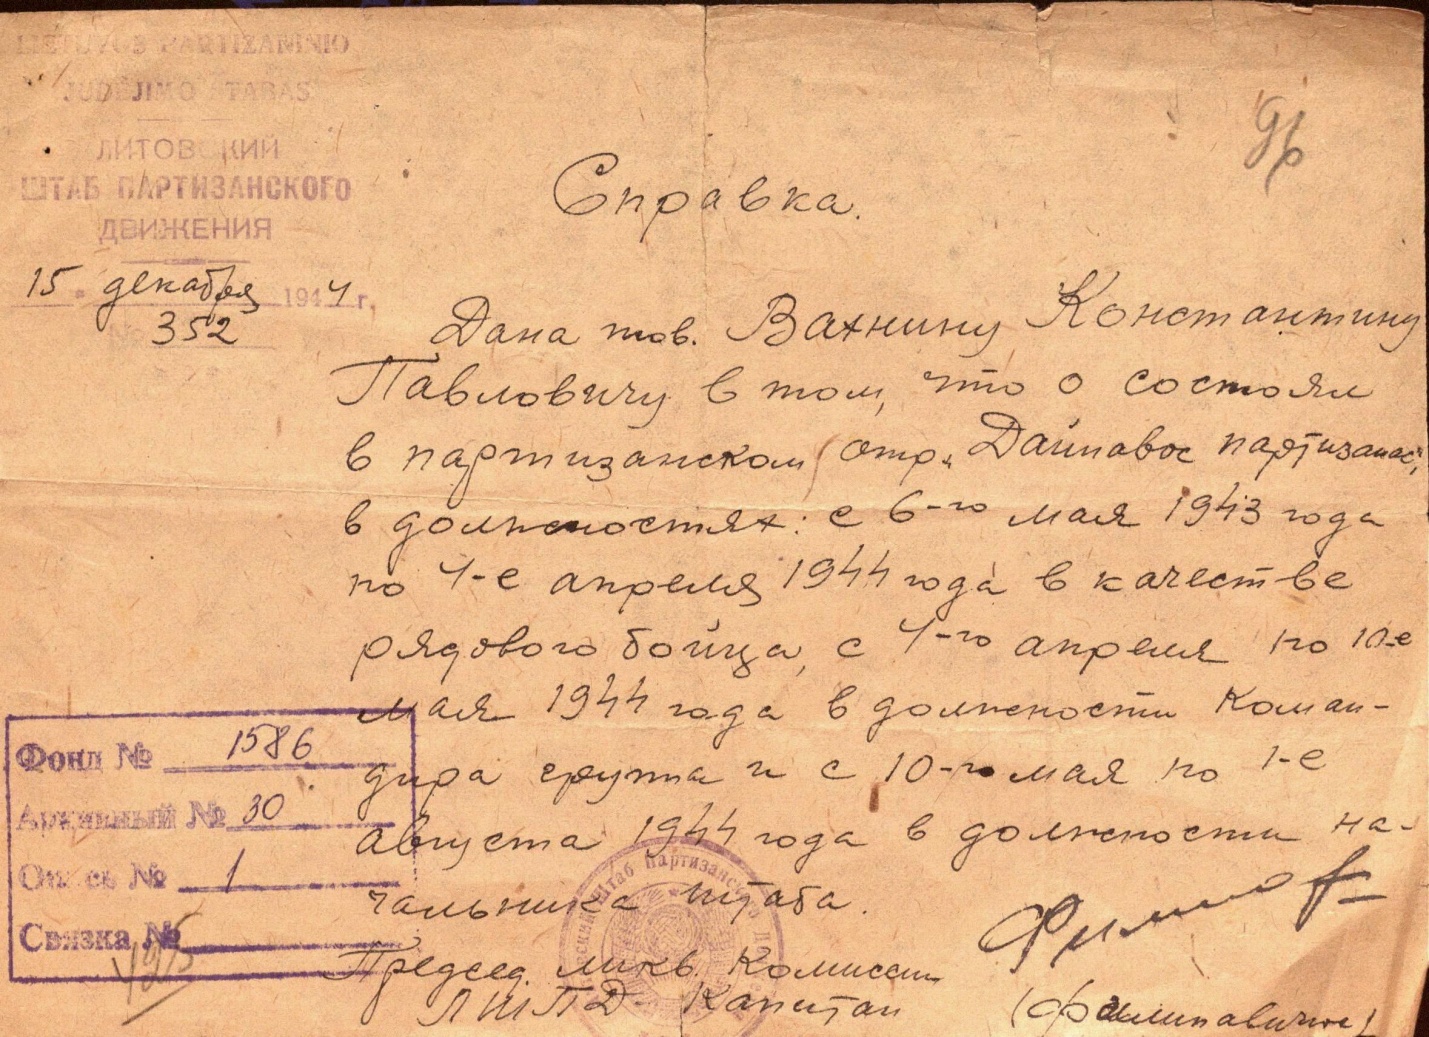 LIETUVOS PARTIZANINIO
JUDĖJIMO ŠTABAS
ЛИТОВСКИЙ
ШТАБ ПАРТИЗАНСКОГО
ДВИЖЕНИЯ
15 декабря 1944 г.
№ 352
96
Справка.
Дана тов. Вахнину Константину
Павловичу в том, что о состоял
в партизанском отр. „Дайнавос партизанас",
в должностях: с 6-го мая 1943 года
по 4-е апреля 1944 года в качестве
рядового бойца, с 4-го апреля по 10-е
мая 1944 года в должности коман-
дира группы и с 10-го мая по 1-е
августа 1944 года в должности на-
чальника штаба.
Председ. ликв. Комиссии
ЛШПД Капитан
Фонд № 1586
Архивный № 30
Опись № 1
Связка №
Штаб Партизанского